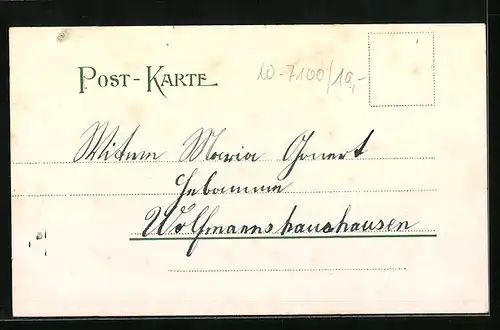 POST-KARTE
10-7100/10,-
Witwe Maria
Hebamme
Wolfmannshaushausen